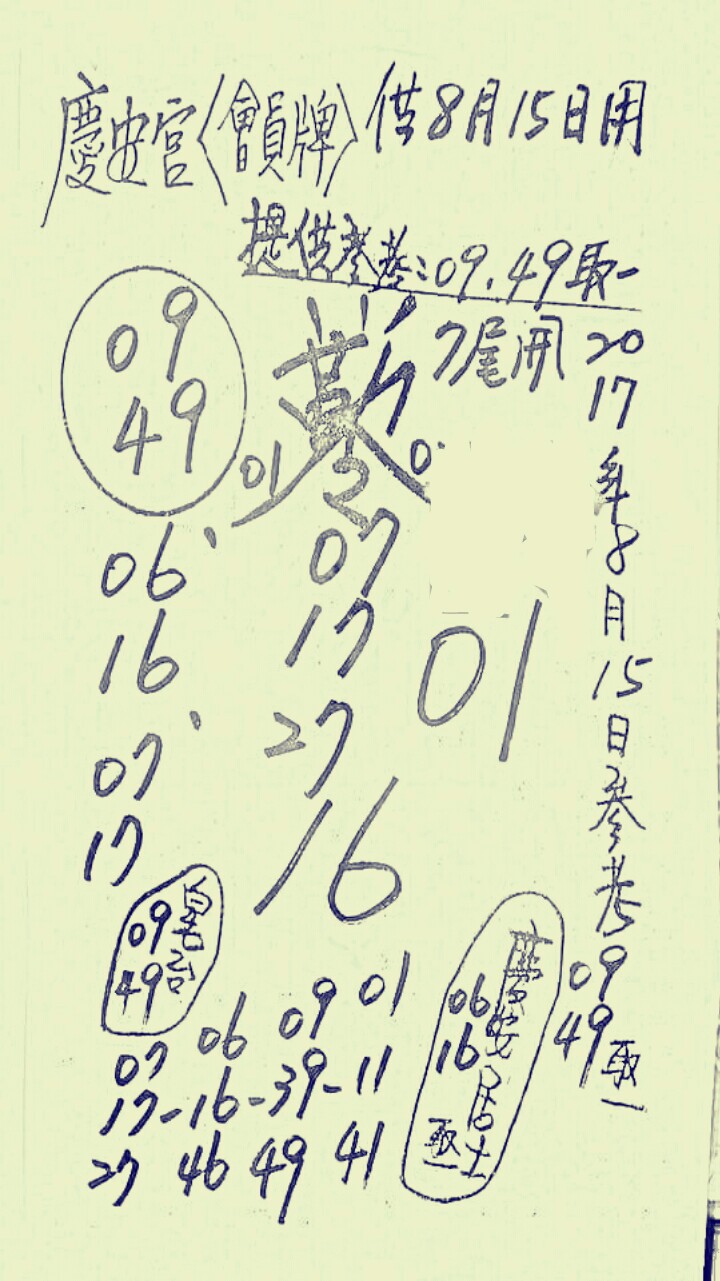 慶安宮〈會員牌〉供8月15日用
提供參考:09.49取一
7尾開
09
49
01
2
0
06
16
07
17
07
17
27
01
16
2017年8月15日參考09 49取一
09
49
慶安居士
06
16
取一
07 06 09 01
17-16-39-11
27 46 49 41